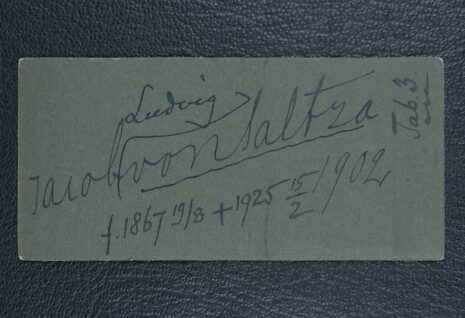 Ludvig
Jacob von Saltza
f. 1867 19/8 + 1925 15/2 1902
Tab. 3.